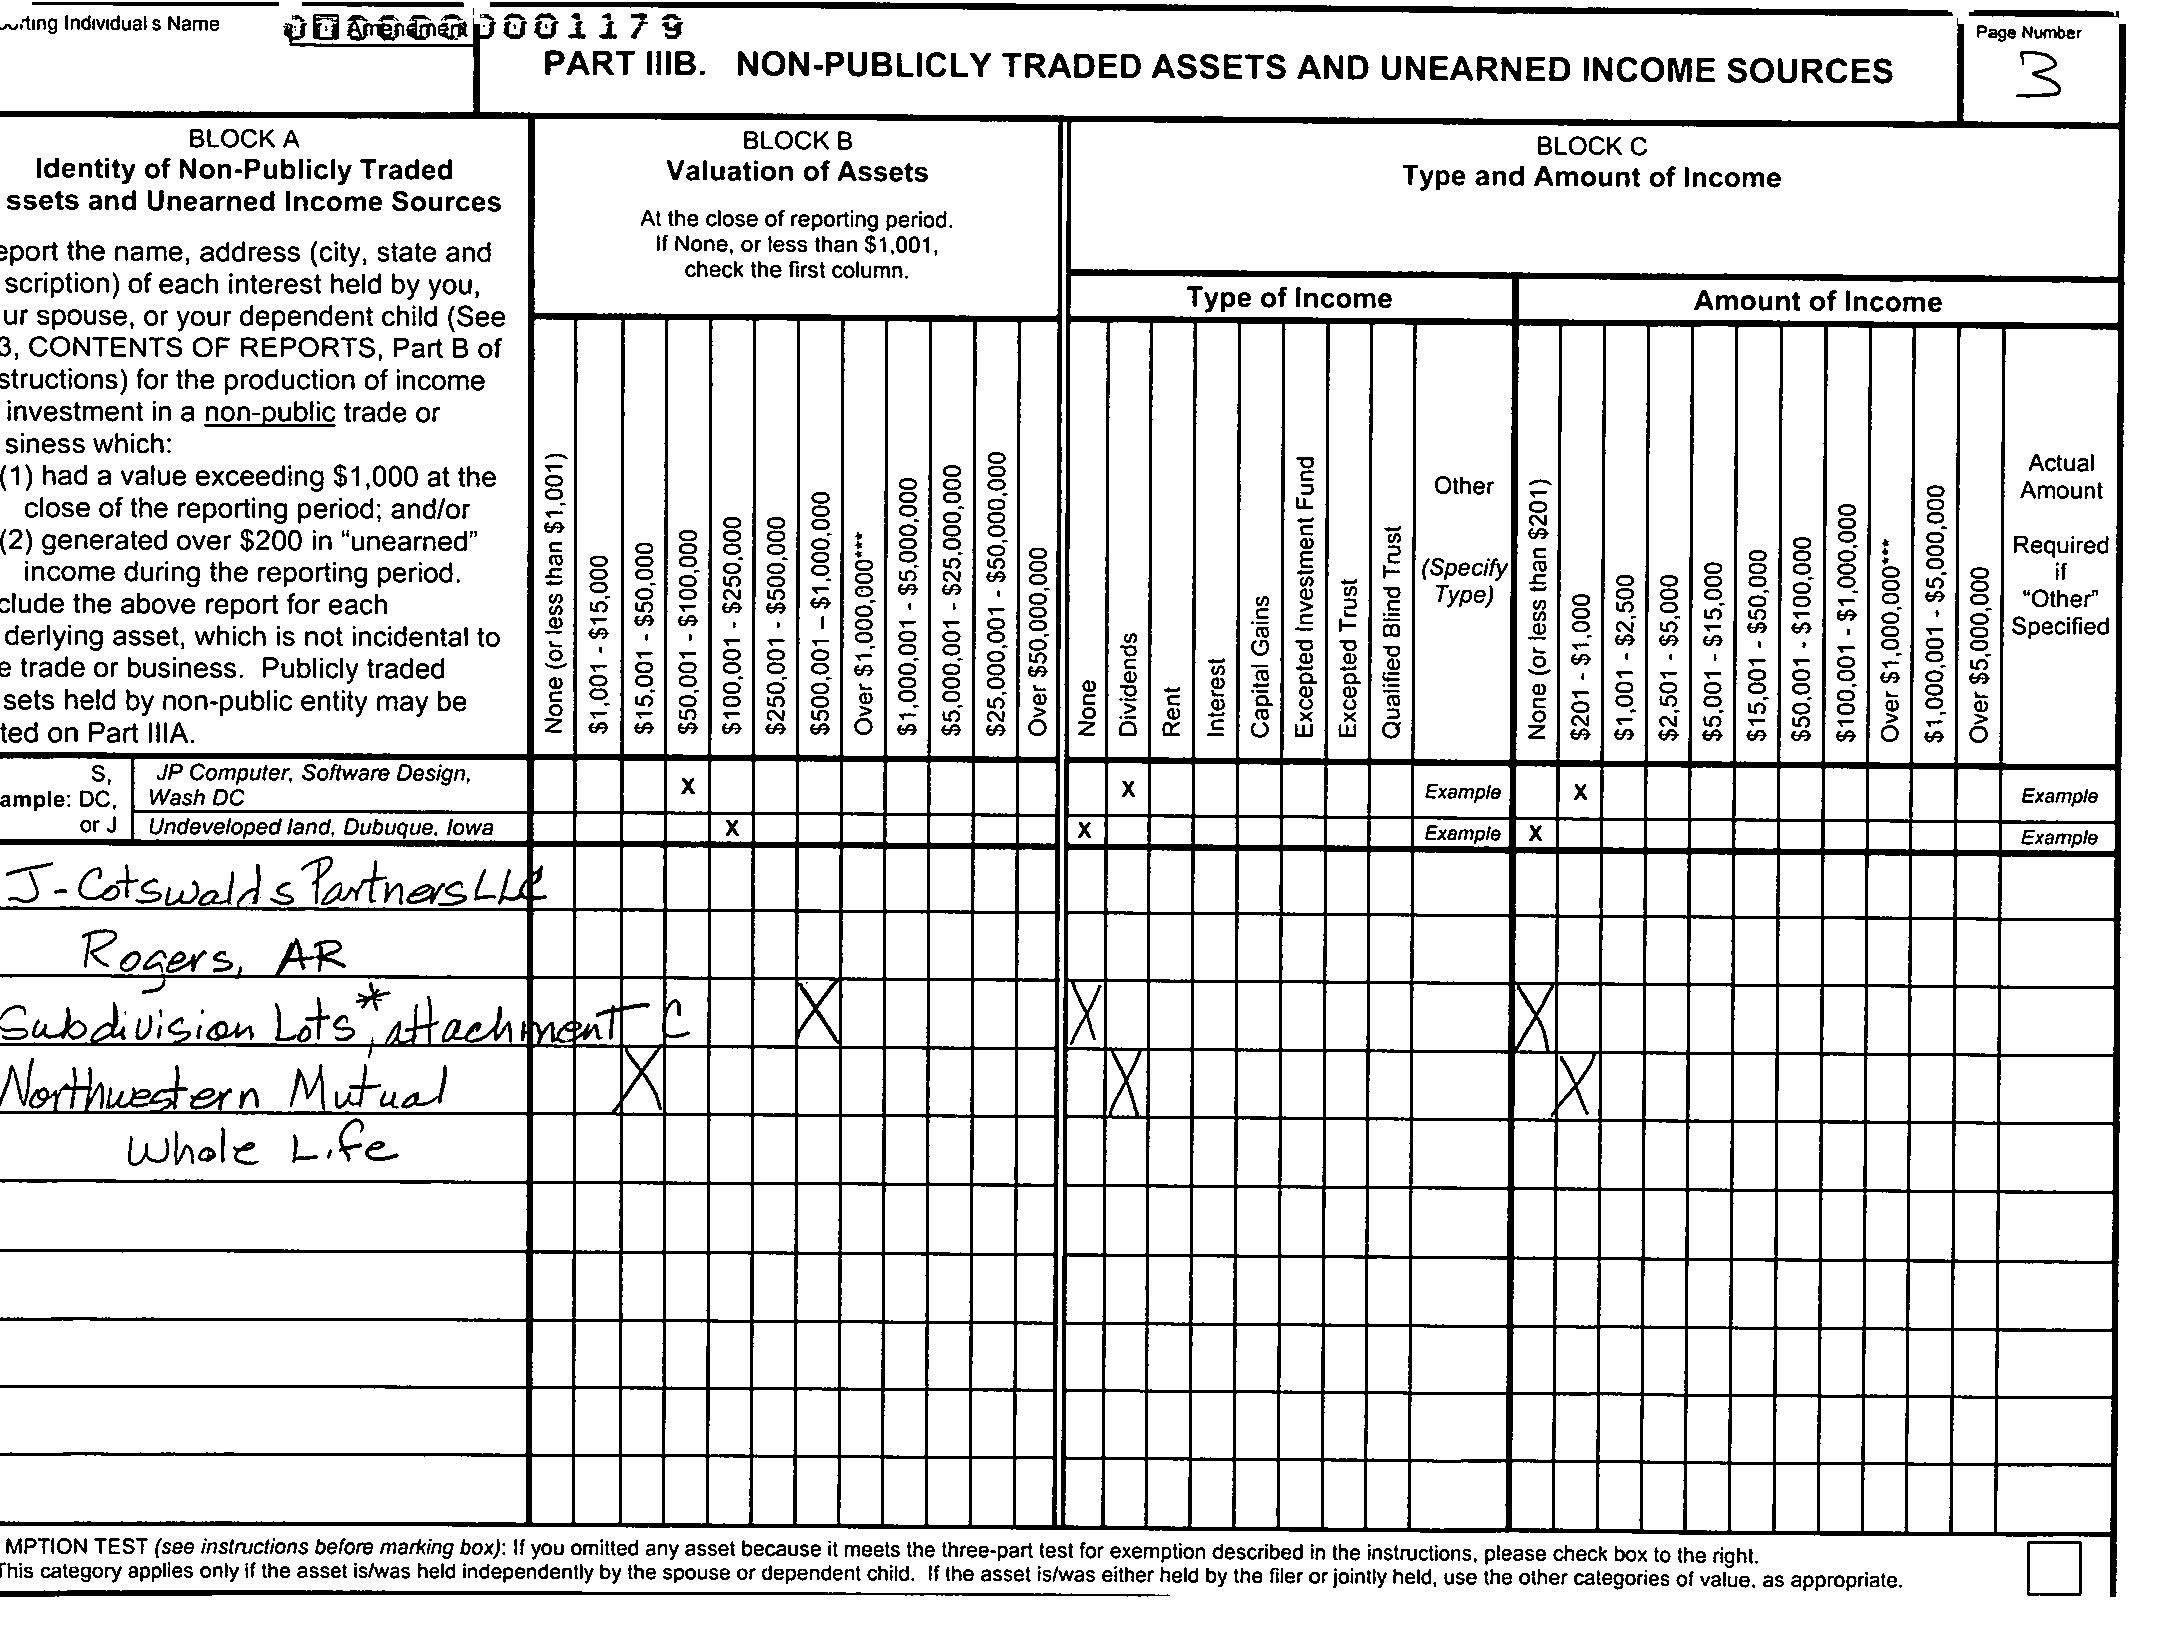 rting Individual s Name
Amendment
0001179
PART IIIB. NON-PUBLICLY TRADED ASSETS AND UNEARNED INCOME SOURCES
Page Number
3
BLOCK A
Identity of Non-Publicly Traded
ssets and Unearned Income Sources
eport the name, address (city, state and
scription) of each interest held by you,
ur spouse, or your dependent child (See
3, CONTENTS OF REPORTS, Part B of
structions) for the production of income
investment in a non-public trade or
siness which:
(1) had a value exceeding $1,000 at the
close of the reporting period; and/or
(2) generated over $200 in “unearned”
income during the reporting period.
clude the above report for each
derlying asset, which is not incidental to
e trade or business. Publicly traded
sets held by non-public entity may be
ted on Part IIIA.
BLOCK B
Valuation of Assets
At the close of reporting period.
If None, or less than $1,001,
check the first column.
None (or less than $1,001)
$1,001 - $15,000
$15,001 - $50,000
$50,001 - $100,000
$100,001 - $250,000
$250,001 - $500,000
$500,001 – $1,000,000
Over $1,000,000***
$1,000,001 - $5,000,000
$5,000,001 - $25,000,000
$25,000,001 - $50,000,000
Over $50,000,000
BLOCK C
Type and Amount of Income
Type of Income
None
Dividends
Rent
Interest
Capital Gains
Excepted Investment Fund
Excepted Trust
Qualified Blind Trust
Other
(Specify
Type)
Amount of Income
None (or less than $201)
$201 - $1,000
$1,001 - $2,500
$2,501 - $5,000
$5,001 - $15,000
$15,001 - $50,000
$50,001 - $100,000
$100,001 - $1,000,000
Over $1,000,000***
$1,000,001 - $5,000,000
Over $5,000,000
Actual
Amount
Required
if
“Other”
Specified
S,
ample: DC,
or J
JP Computer, Software Design,
Wash DC
X X Example X Example
Undeveloped land, Dubuque, Iowa X X Example X Example
J-Cotswalds Partners LLC
Rogers, AR
Subdivision Lots*, attachment C X X X
Northwestern Mutual X X X
Whole Life
MPTION TEST (see instructions before marking box): If you omitted any asset because it meets the three-part test for exemption described in the instructions, please check box to the right.
This category applies only if the asset is/was held independently by the spouse or dependent child. If the asset is/was either held by the filer or jointly held, use the other categories of value, as appropriate.